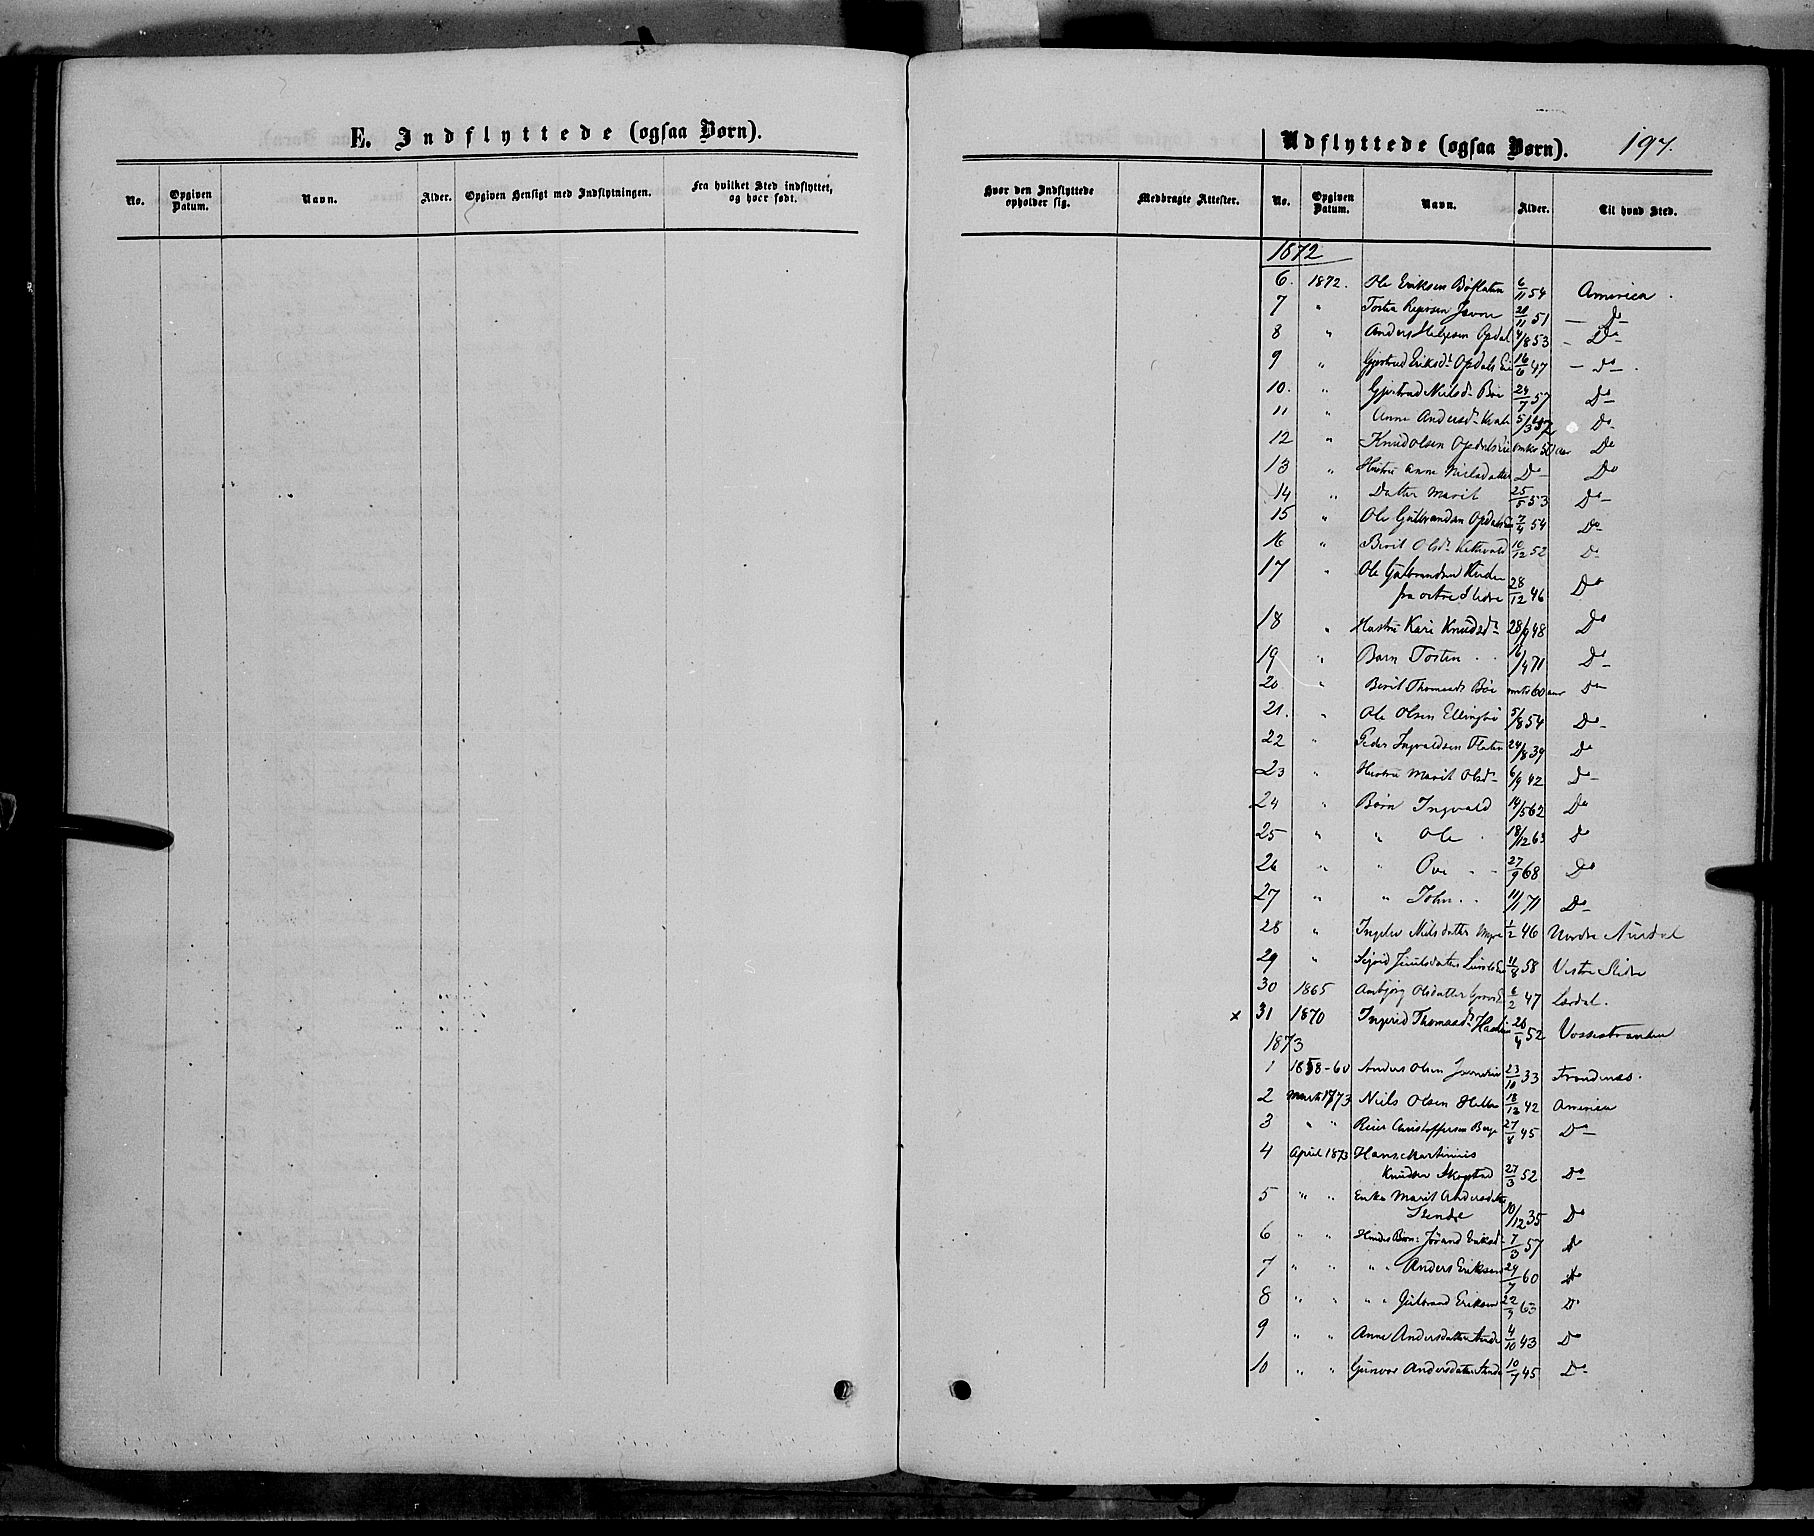 E. Indflyttede (ogsaa Børn).
No. Opgiven Datum. Navn. Alder. Opgiven Hensigt med Indflytningen. Fra hvilket Sted indflyttet, og hvor født.
Udflyttede (ogsaa Børn). 197.
Hvor den Indflyttede opholder sig. Medbragte Attester. No. Opgiven Datum. Navn. Alder. Til hvad Sted.
1872
6. 1872. Ole Eriksen Bøflaten 6/11 54 America.
7 " Tosten 20/11 51 — Do —
8 " Anders Helgesen Opdal 4/8 53 — Do —
9 " Gjertrud Eriksdr Opdals Eie 16/6 47 — Do —
10. " Gjertrud Nielsdr Bøe 24/7 57 Do —
11 " Anne Andersdr 5/3 52 Do
12 " Knud Olsen Opdalseie omkr 50 aar Do
13 " Hustru Anne Nielsdatter Do — Do
14 " Datter Marit 25/5 53 Do —
15 " Ole Gulbrandsen Opdals 7/4 54 Do
16 " Berit Olsdr 10/12 52 Do
17 " Ole Gulbrandsen
fra østre Slidre 28/12 46 Do
18 " Hustru Kari Knudsdr 28/9 48 Do
19 " Barn Tosten 16/4 71 Do
20 " Berit Thomasdr Bøe omtr 60 aar Do
21. " Ole Olsen Ellingbø 5/8 54 Do
22 " Peder Ingvaldsen Flaten 24/8 39 Do
23 " Hustru Marit Olsdr 6/9 42 Do —
24 " Børn Ingvald 14/5 62 Do
25 " " Ole 18/12 63 Do
26 " " Ove 27/9 68 Do
27 " " John 11/11 71 Do
28 " Ingelev Nielsdatter 1/2 46 Nordre Aurdal
29 " Sigrid 11/8 58 Vestre Slidre
30 1865 Ambjørg Olsdatter 6/2 47 Lærdal.
x 31 1870 Ingerid Thomasdr 20/4 52 Vossestranden
1873
1 1858-60 Anders Olsen 23/10 33 Trondenæs.
2 Marts 1873 Niels Olsen 18/12 42 America
3 " " Reier Christoffersen 27/8 45 Do
4 April 1873 Hans Martinius
Knudsen Skogstad 27/3 52 Do
5 " " Enke Marit Andersdtr
Stende 10/12 35 Do
6 " " Hendes Børn: Jørand Eriksdr 7/3 57 Do
7 " " " " Anders Eriksen 29/7 60 Do
8 " " " " Gulbrand Eriksen 22/9 63 Do
9 " " Anne Andersdatter 4/10 43 Do
10 " " Gunvor Andersdatter 10/7 45 Do